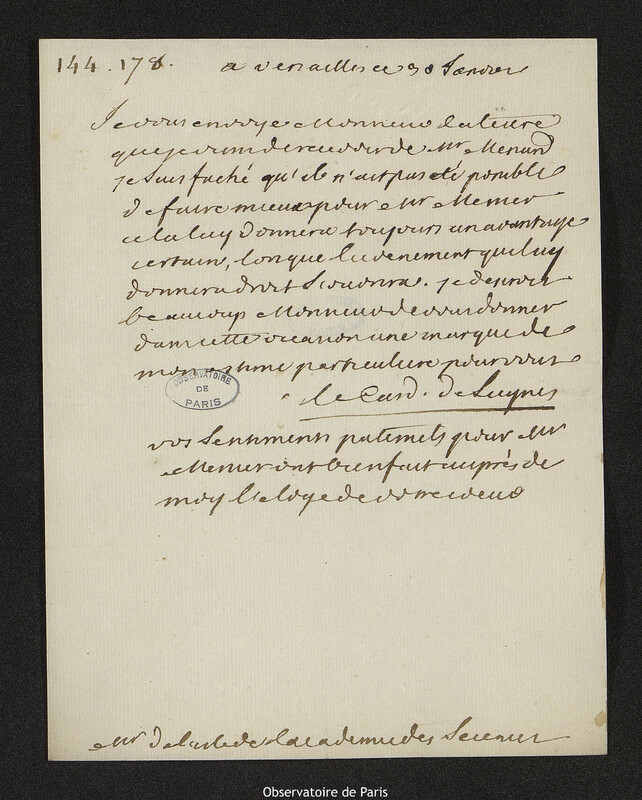 144. 178.
a versailles ce 30 Janvier
Je vous envoye Monsieur la lettre
que je viens de recevoir de Mr Menard
je suis faché qu'il n'ait pas eté possible
de faire mieux pour Mr Messier
cela luy donnera toujours un avantage
certain, lorsque l'evenement qui luy
donnera droit s'ouvrira. je desirois
beaucoup Monsieur de vous donner
dans cette occasion une marque de
mon estime particuliere pour vous
le Card. de Luynes
OBSERVATOIRE
DE
PARIS
vos sentiments paternels pour Mr
Messier ont bien fait auprès de
moy l'eloge de votre coeur
Mr de l'isle de l'academie des Sciences
Observatoire de Paris